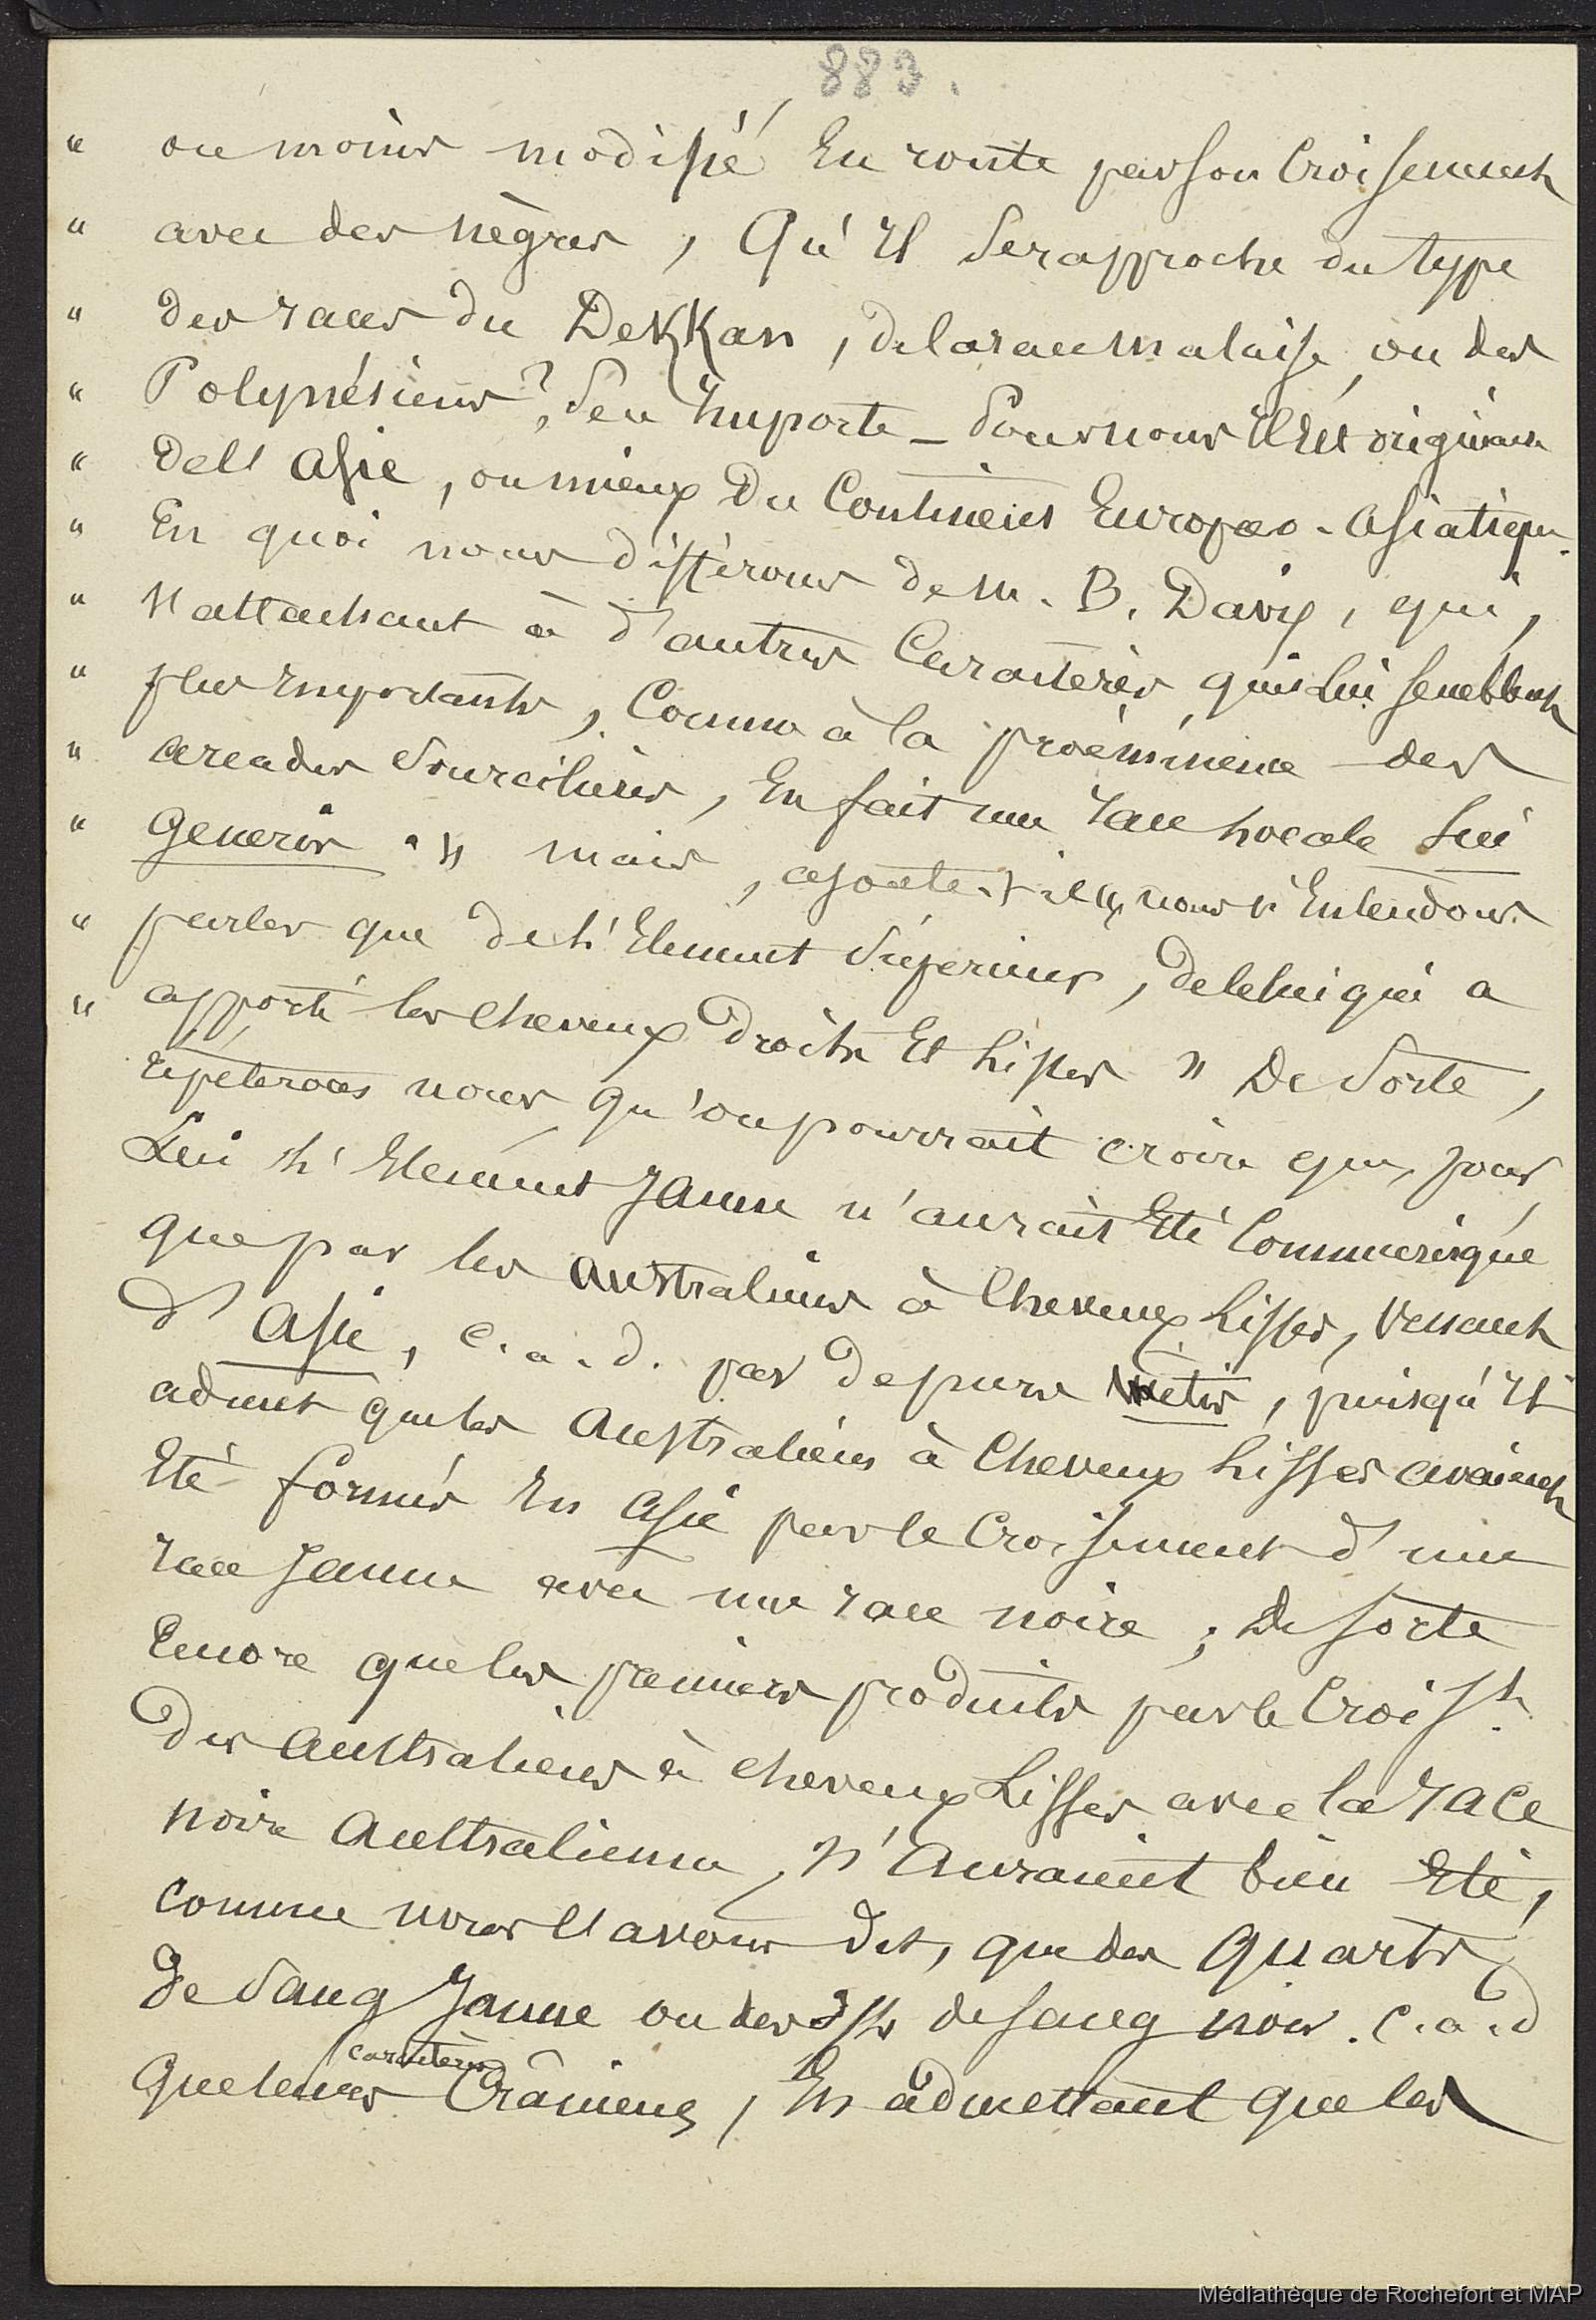 883.
" ou moins modifié En route par son Croisement
" avec des nègres, Qu'Il se rapproche du type
" des races du DeKKan, de la race malaise, ou des
" Polynésiens ?, Peu Importe _ Pour nous Il Est originaire
" de l'Asie, ou mieux Du Continent Européo-Asiatique.
" En quoi nous différons de M. B. Davis, qui,
" s'attachant à d'autres Caractères qui Lui semblent
" plus Importants, Comme à la proéminence des
" arcades Sourcilières, En fait une race Locale Sui
" Generis. " mais, ajoute-t-il " nous n'Entendons
" parler que de L'Element Superieur, de celui qui a
" apporté les Cheveux droits Et Lisses " De Sorte,
répéterons nous, qu'on pourrait croire que, pour
Lui L'Element Jaune n'aurait Eté Communiqué
que par les Australiens à Cheveux Lisses, Venant
d'Asie, c.a.d. par de purs métis, puisqu'Il
admet que les Australiens à Cheveux Lisses avaient
Eté formés En Asie par le Croisement d'une
race Jaune avec une race noire ; De Sorte
Encore que les premiers produits par le Crois.t
des Australiens à cheveux Lisses avec la race
noire Australienne, n'Auraient bien Eté,
comme nous l'avons dit, que des Quarts
de Sang Jaune ou des 3/4 de sang noir. C.a.d
que leurs caractères Crâniens, En admettant que les
Médiathèque de Rochefort et MAP